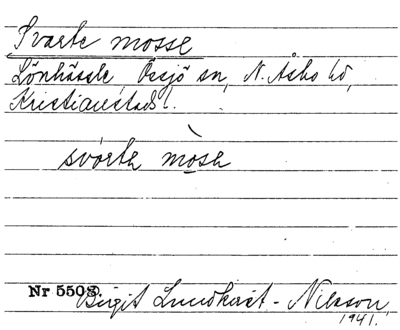 Svarte mosse
Lönhässle, Össjö sn, N. Åsbo hd,
Kristianstads l.
svarta mosa
Nr 5508. Birgit Lundkvist - Nilsson,
1941.